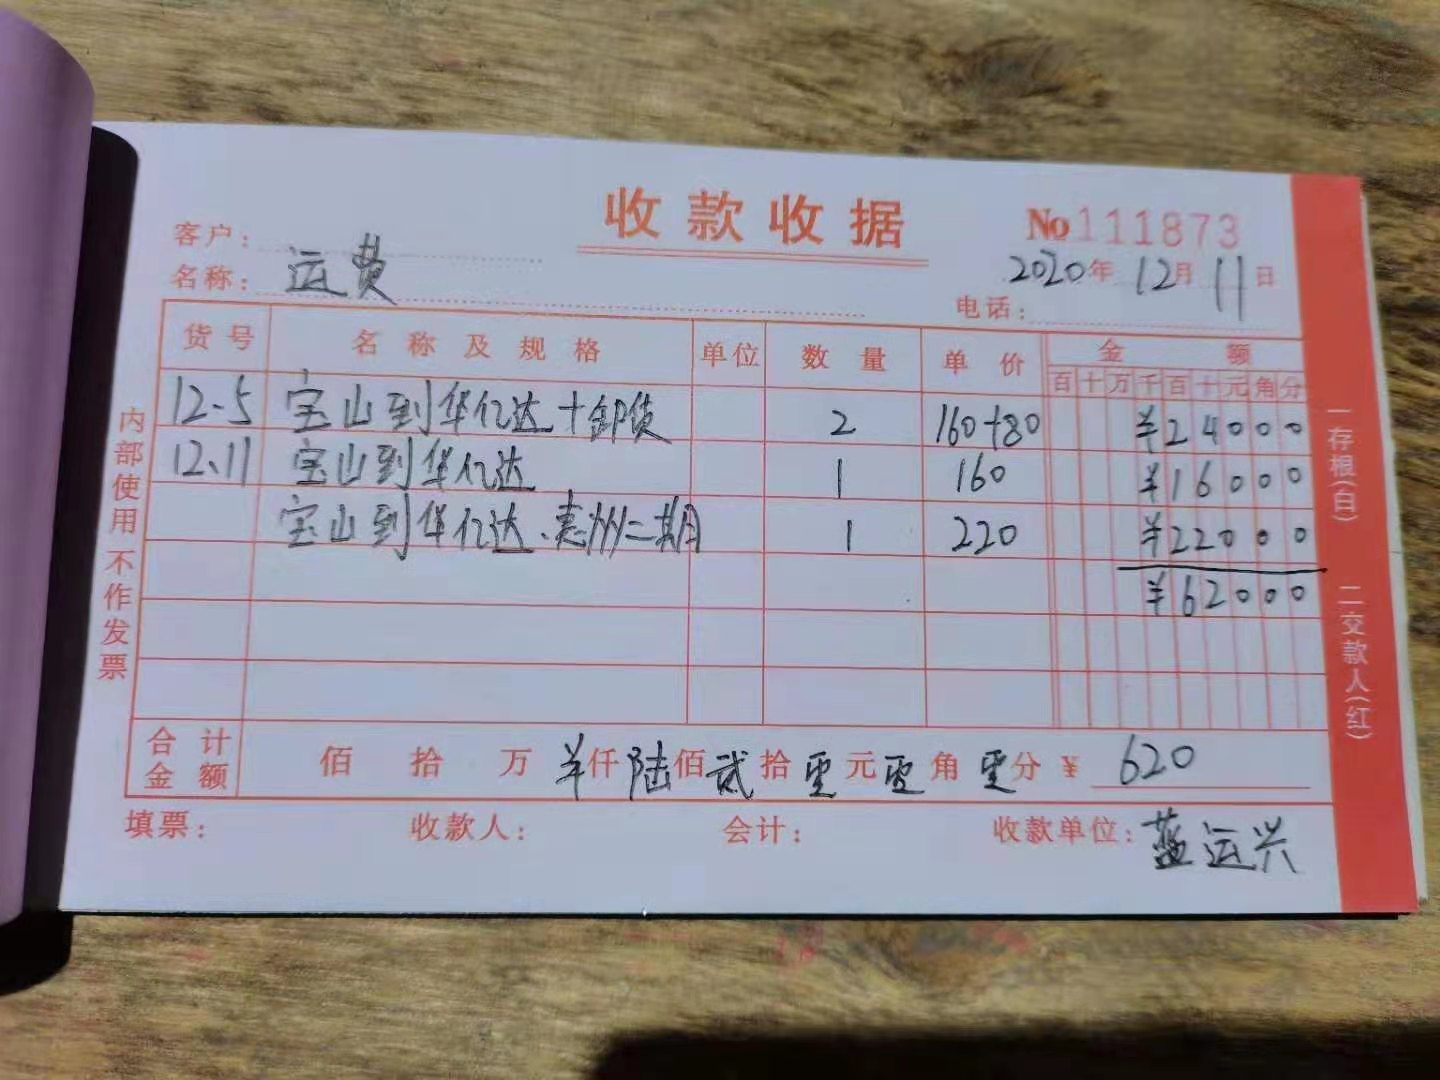 收款收据
No 111873
客户：
名称：运费
2020年12月11日
电话：
货号 名称及规格 单位 数量 单价 金额
百十万千百十元角分
12.5 宝山到华亿达+卸货 2 160+80 ¥24000
12.11 宝山到华亿达 1 160 ¥16000
宝山到华亿达、惠州二期 1 220 ¥22000
¥62000
合计金额 佰 拾 万 ¥仟陆佰贰拾零元零角零分 ¥ 620
填票： 收款人： 会计： 收款单位：蓝运兴
内部使用 不作发票
一存根(白) 二交款人(红)